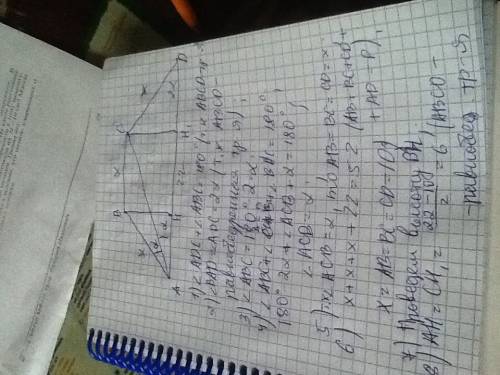 B
C
x
x
x
α
α
2α
22
A
H
H₁
D
1) ∠ADC + ∠ABC = 180° (т.к ABCD – тр-
2) ∠BAD = ∠ADC = 2α (т.к ABCD –
равнобедренная тр-я);
3) ∠ABC = 180° - 2α
4) ∠ABC + ∠ACB + ∠ = 180°,
180° - 2α + ∠ACB + α = 180°;
∠ACB = α
5) т.к ∠ACB = α, то AB = BC = CD = x;
6) x + x + x + 22 = 52 (AB + BC + CD +
+ AD = P);
x = AB = BC = CD = 10
7) Проведем высоту BH,
8) AH = CH₁ = (22 - 10)/2 = 6 (ABCD –
- равнобед. тр-я)